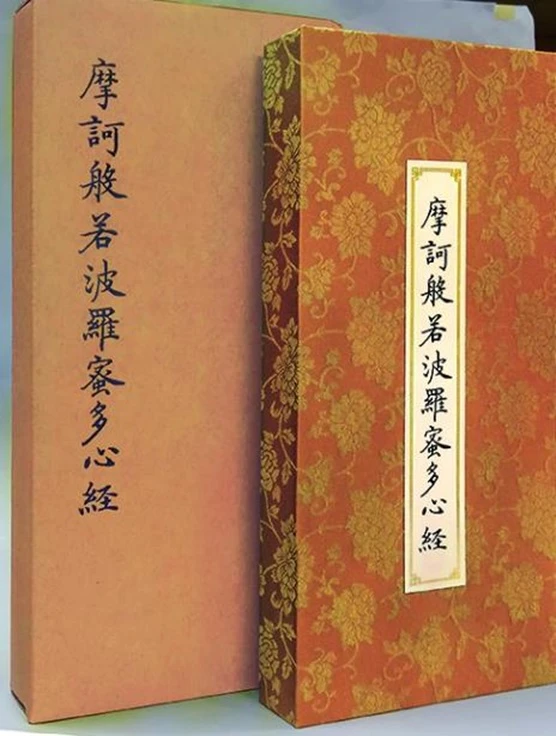 摩訶般若波羅蜜多心経
摩訶般若波羅蜜多心経